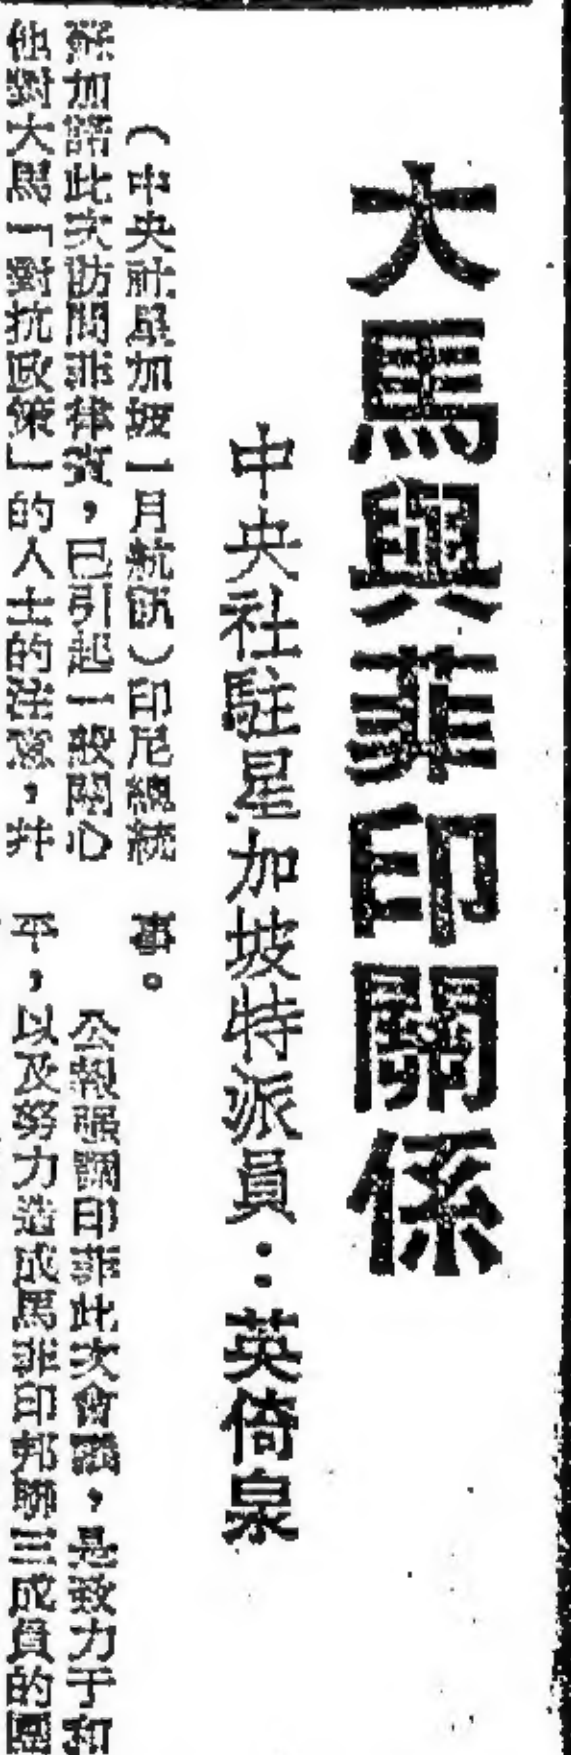 大馬與菲印關係
中央社駐星加坡特派員：英倚泉
（中央社星加坡一月航訊）印尼總統
蘇加諾此次訪問菲律賓，已引起一般關心
他對大馬「對抗政策」的人士的注意，幷
事。
公報強調印菲此次會議，是致力于和
平，以及努力造成馬菲印邦聯三成員的團